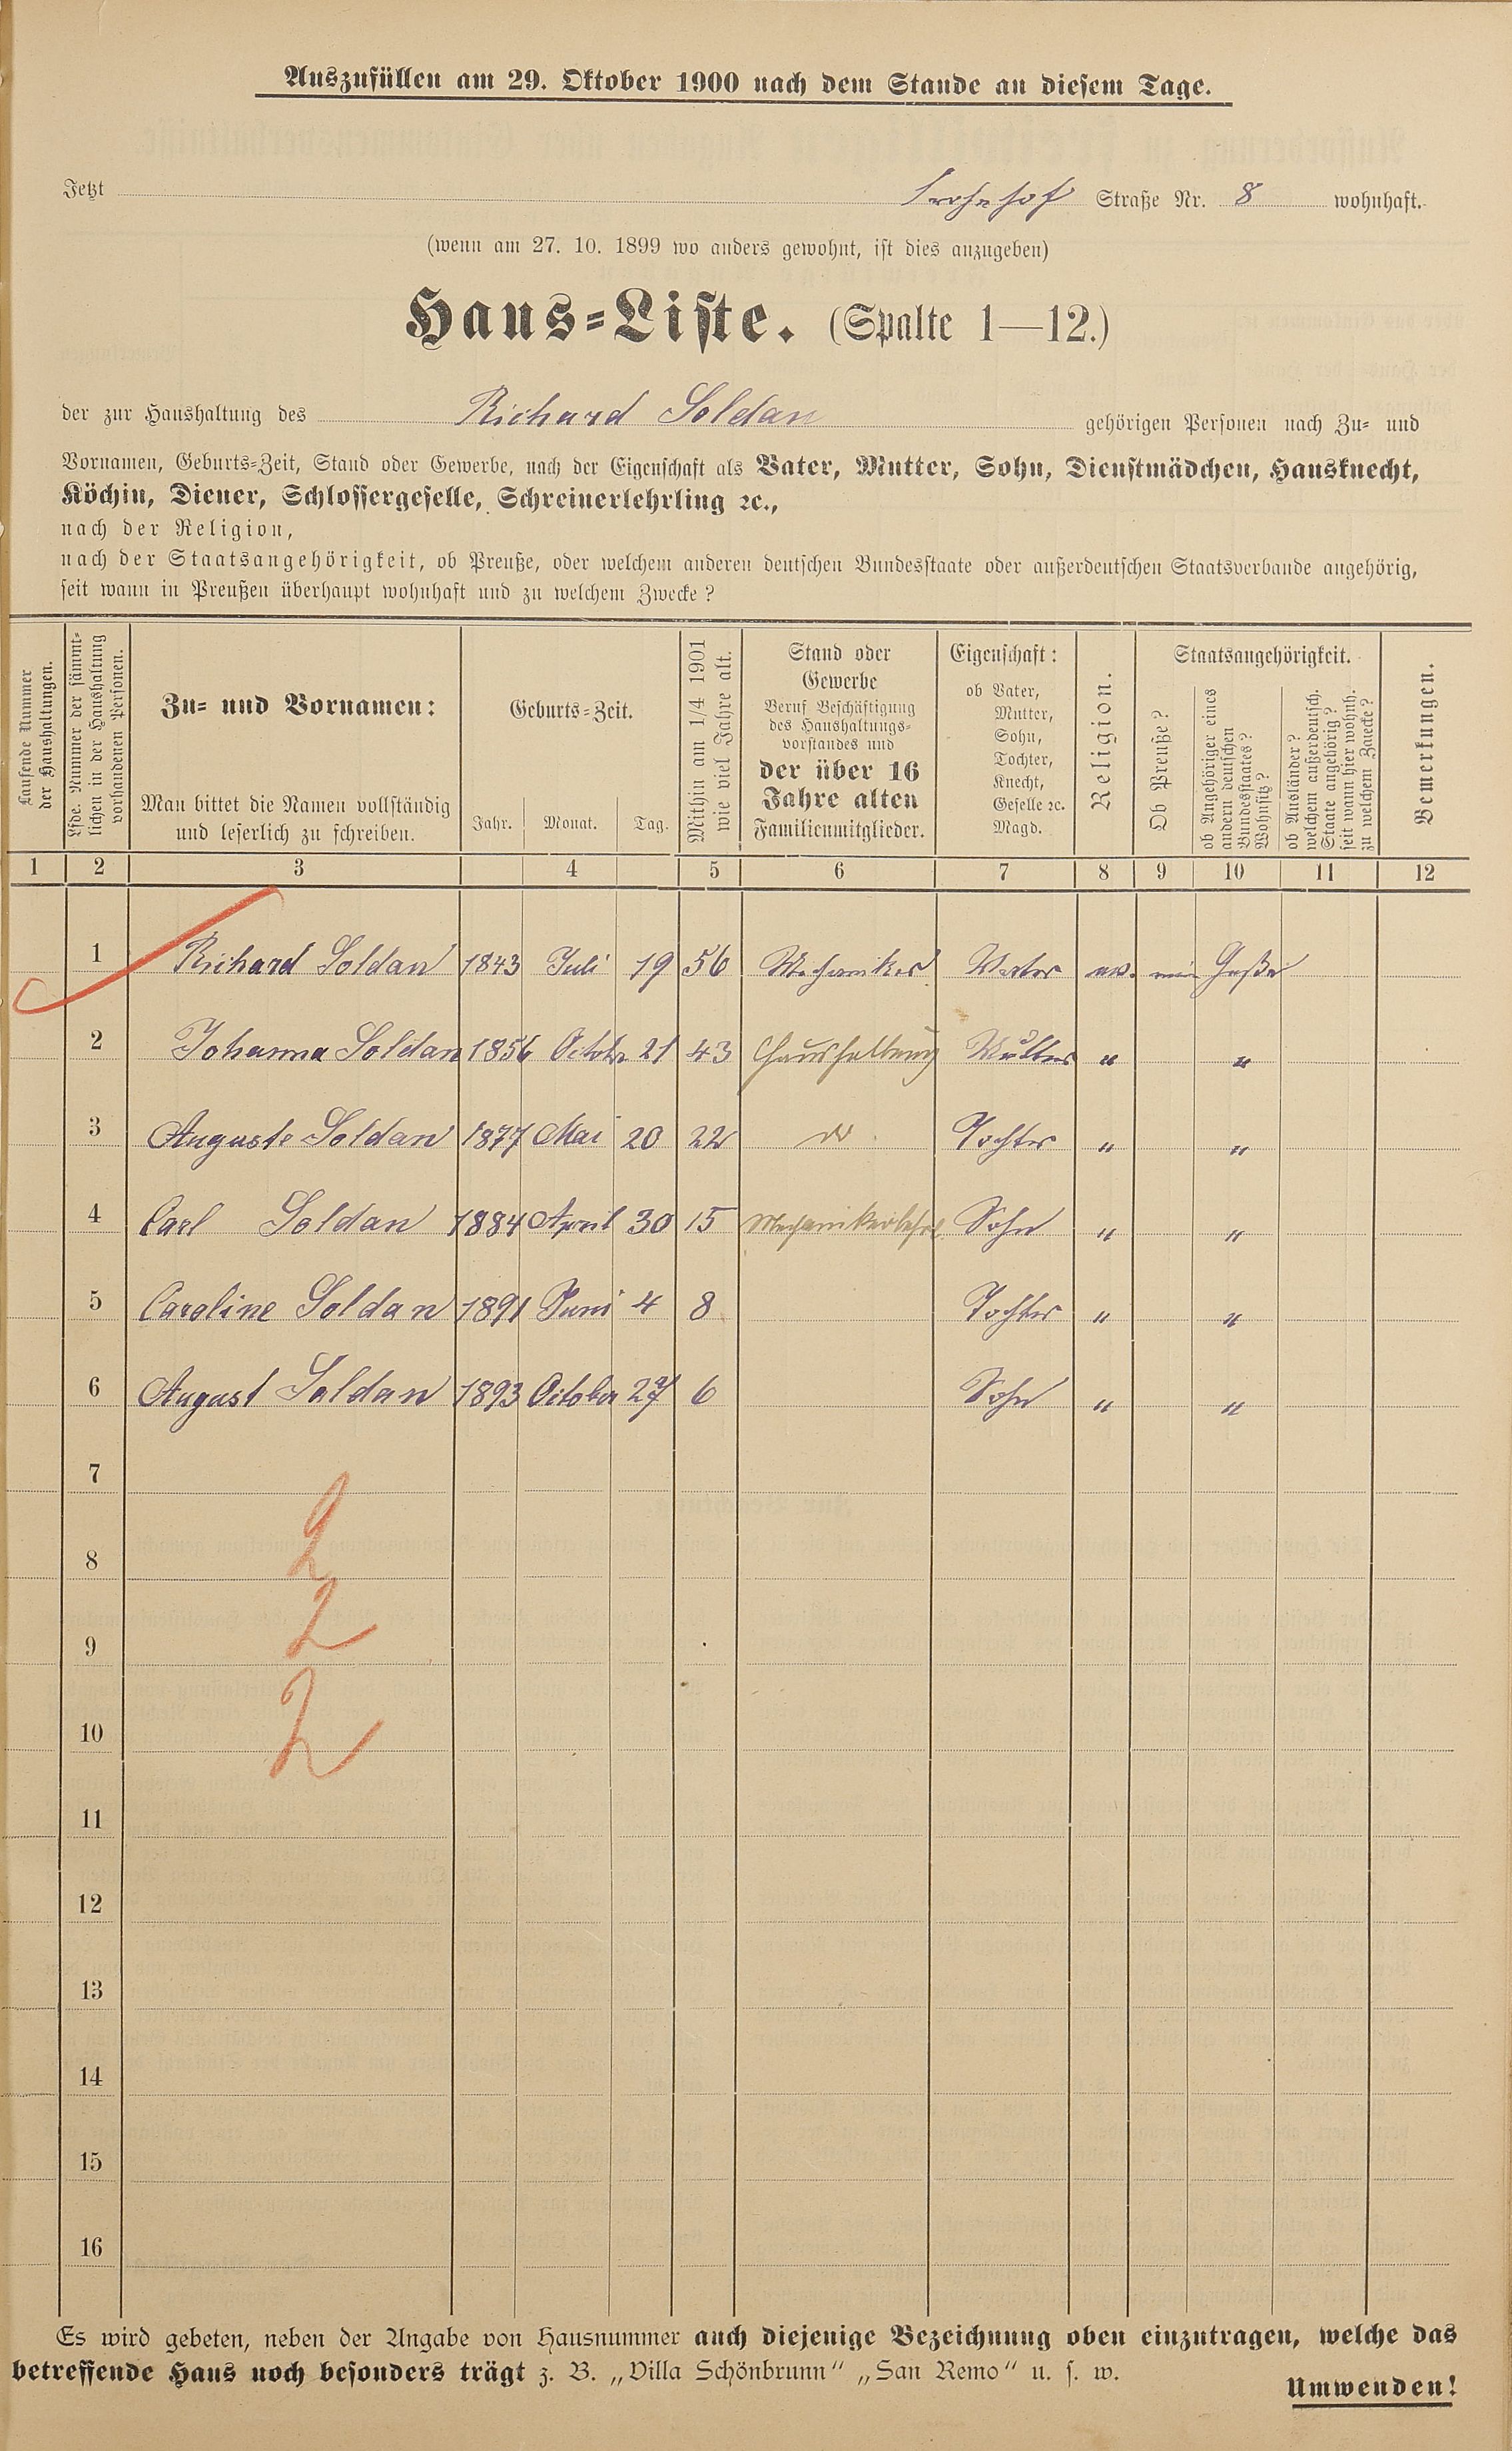 Auszufüllen am 29. Oktober 1900 nach dem Stande an diesem Tage.
Jetzt Frohnhof Straße Nr. 8 wohnhaft.
(wenn am 27. 10. 1899 wo anders gewohnt, ist dies anzugeben)
Haus-Liste. (Spalte 1—12.)
der zur Haushaltung des Richard Soldan gehörigen Personen nach Zu- und
Vornamen, Geburts-Zeit, Stand oder Gewerbe, nach der Eigenschaft als Vater, Mutter, Sohn, Dienstmädchen, Hausknecht,
Köchin, Diener, Schlossergeselle, Schreinerlehrling ꝛc.,
nach der Religion,
nach der Staatsangehörigkeit, ob Preuße, oder welchem anderen deutschen Bundesstaate oder außerdeutschen Staatsverbande angehörig,
seit wann in Preußen überhaupt wohnhaft und zu welchem Zwecke?
Laufende Nummer
der Haushaltungen.
Lfde. Nummer der sämmt-
lichen in der Haushaltung
vorhandenen Personen.
Zu- und Vornamen:
Man bittet die Namen vollständig
und leserlich zu schreiben.
Geburts-Zeit.
Jahr. Monat. Tag.
Mithin am 1/4 1901
wie viel Jahre alt.
Stand oder
Gewerbe
Beruf Beschäftigung
des Haushaltungs-
vorstandes und
der über 16
Jahre alten
Familienmitglieder.
Eigenschaft:
ob Vater,
Mutter,
Sohn,
Tochter,
Knecht,
Geselle ꝛc.
Magd.
Religion.
Staatsangehörigkeit.
Ob Preuße?
ob Angehöriger eines
andern deutschen
Bundesstaates?
Wohnsitz?
ob Ausländer?
welchem außerdeutsch.
Staate angehörig?
seit wann hier wohnh.
zu welchem Zwecke?
Bemerkungen.
1 2 3 4 5 6 7 8 9 10 11 12
1 Richard Soldan 1843 Juli 19 56 Mechaniker Vater ev.
2 Johanna Soldan 1856 Octobr 21 43 Haushaltung Mutter " "
3 Auguste Soldan 1877 Mai 20 22 do Tochter " "
4 Carl Soldan 1884 April 30 15 Mechanikerlehrl Sohn " "
5 Caroline Soldan 1891 Juni 4 8 Tochter " "
6 August Soldan 1893 October 27 6 Sohn " "
7
8 2
9 2
10 2
11
12
13
14
15
16
Es wird gebeten, neben der Angabe von Hausnummer auch diejenige Bezeichnung oben einzutragen, welche das
betreffende Haus noch besonders trägt z. B. „Villa Schönbrunn" „San Remo" u. s. w.
Umwenden!